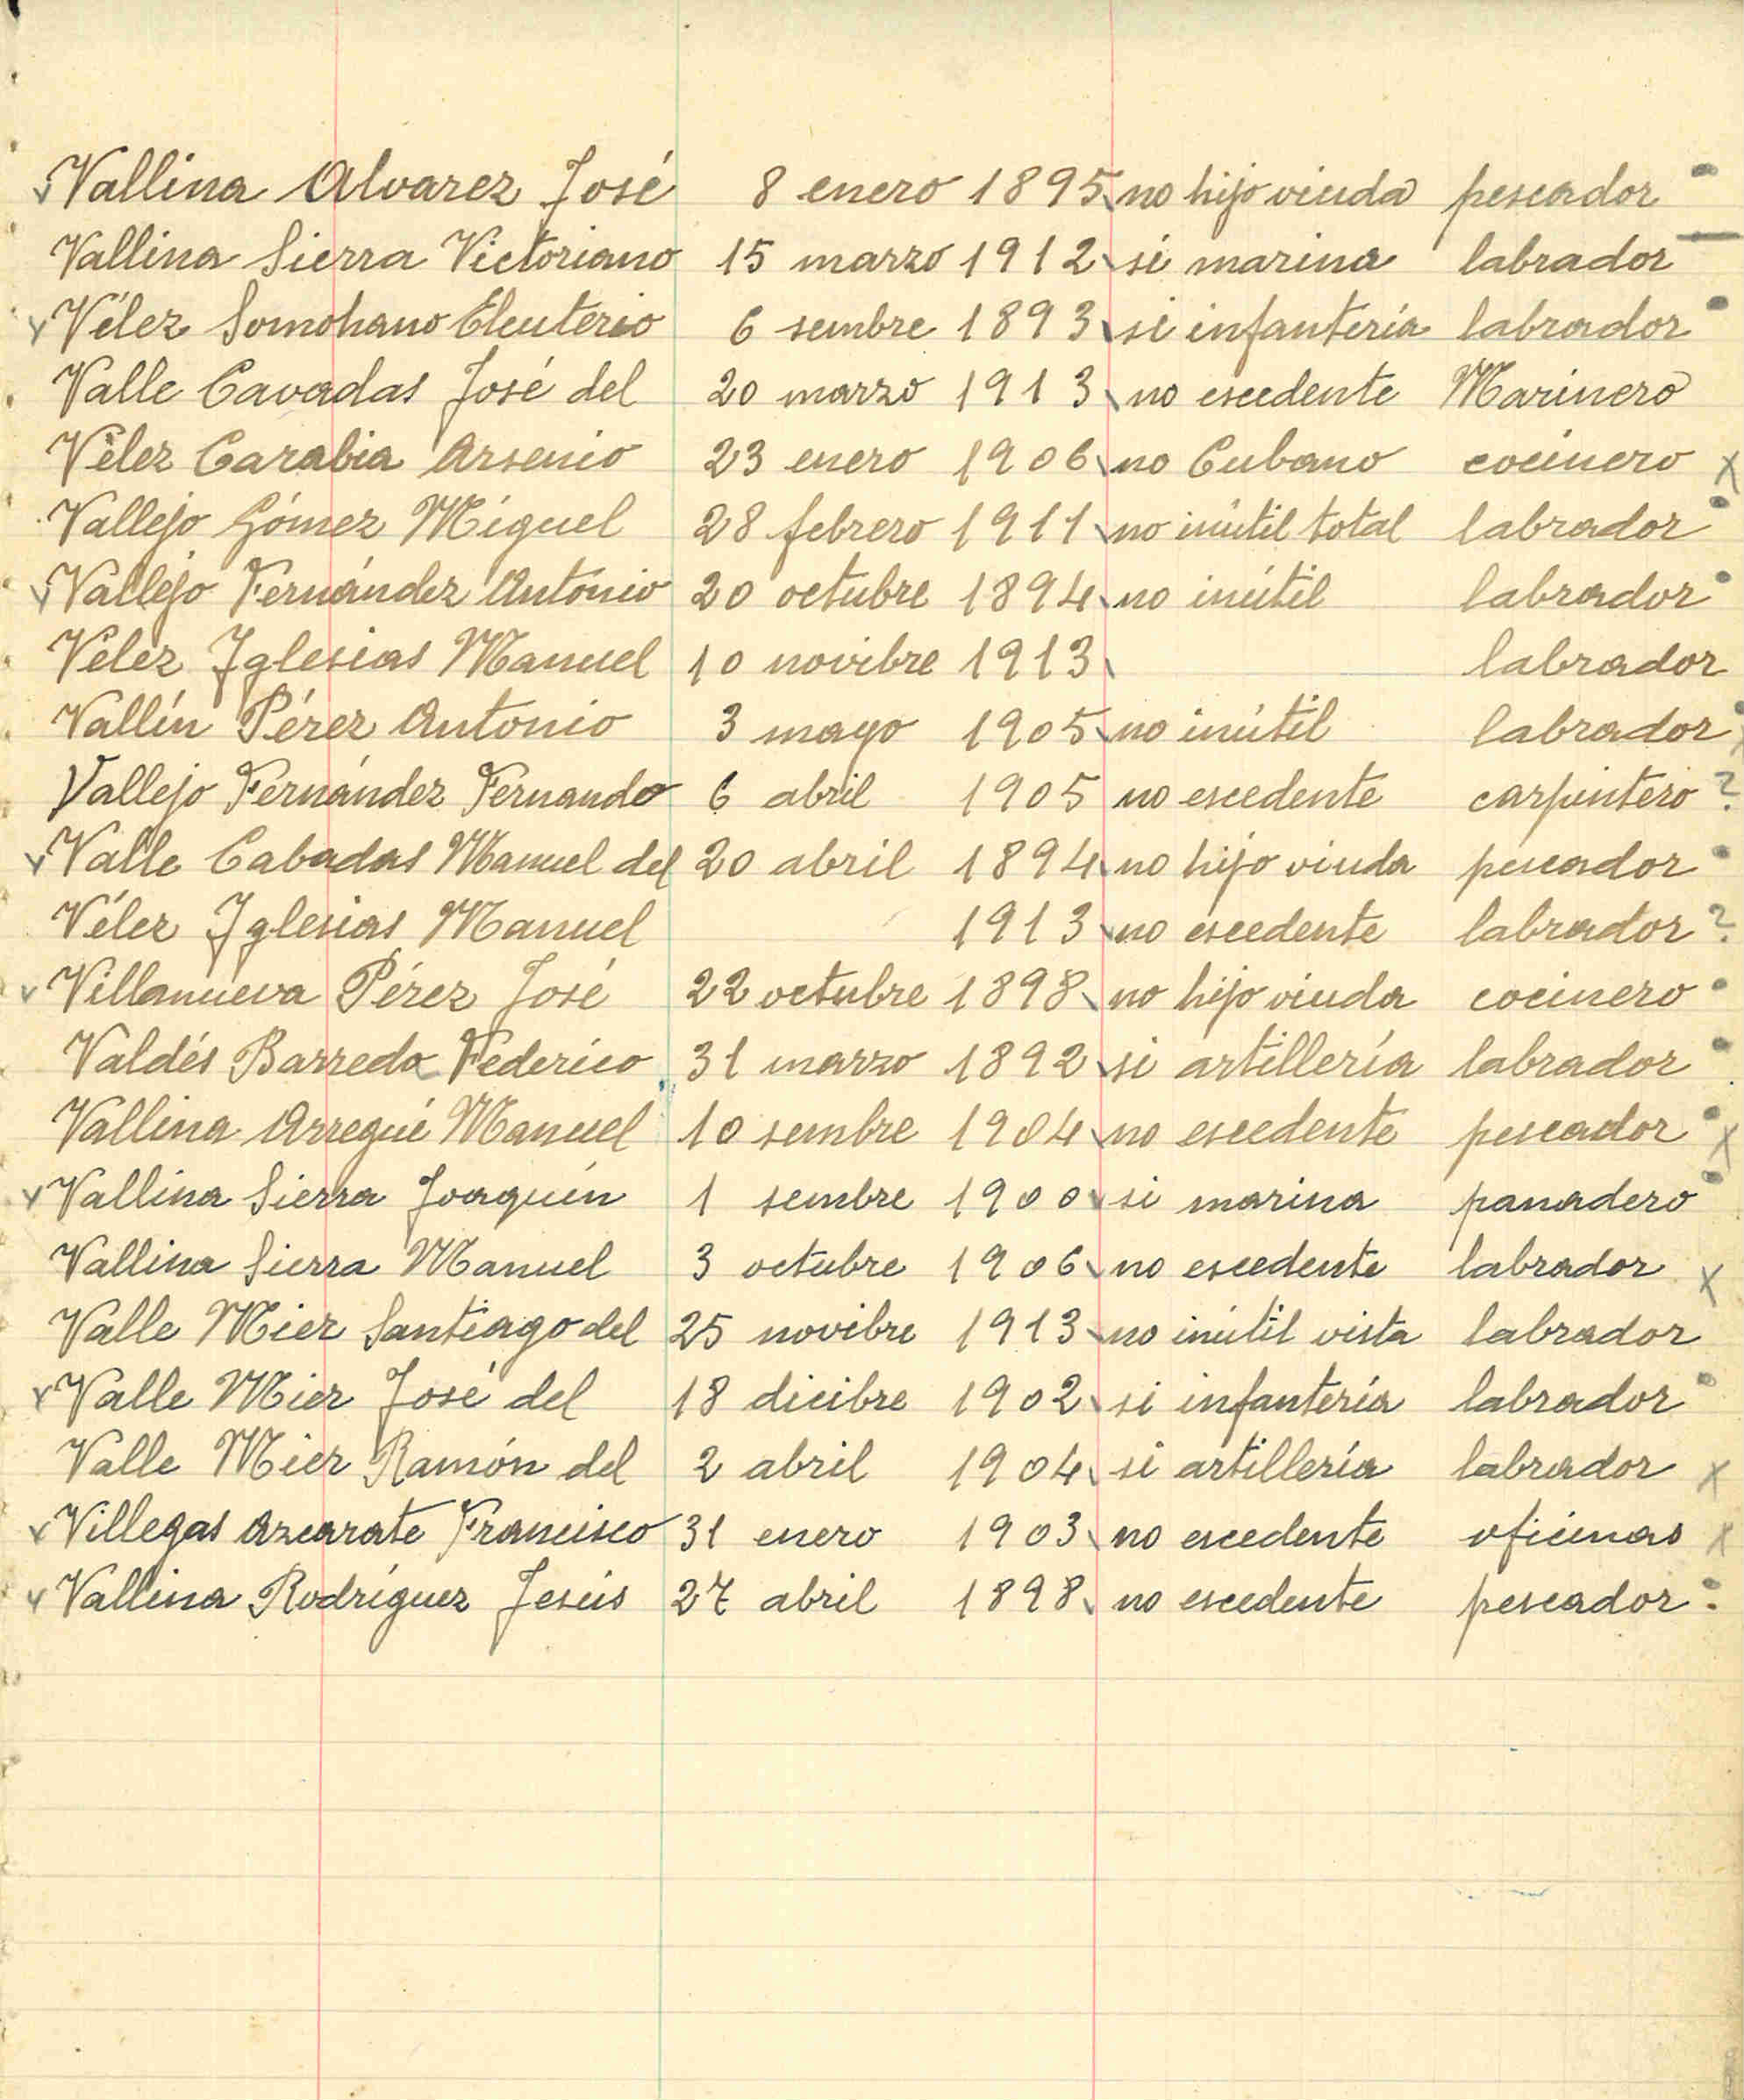 Vallina Alvarez José 8 enero 1895 no hijo viuda pescador
Vallina Sierra Victoriano 15 marzo 1912 si marina labrador
Vélez Somohano Eleuterio 6 sembre 1893 si infantería labrador
Valle Cavadas José del 20 marzo 1913 no escedente Marinero
Vélez Carabia Arsenio 23 enero 1906 no Cubano cocinero x
Vallejo Gómez Miguel 28 febrero 1911 no inútil total labrador
Vallejo Fernández Antonio 20 octubre 1894 no inútil labrador
Vélez Iglesias Manuel 10 novibre 1913 labrador
Vallín Pérez Antonio 3 mayo 1905 no inútil labrador
Vallejo Fernández Fernando 6 abril 1905 no escedente carpintero ?
Valle Cabadas Manuel del 20 abril 1894 no hijo viuda pescador
Vélez Iglesias Manuel 1913 no escedente labrador ?
Villanueva Pérez José 22 octubre 1898 no hijo viuda cocinero
Valdés Barredo Federico 31 marzo 1892 si artillería labrador
Vallina Arregui Manuel 10 sembre 1904 no escedente pescador x
Vallina Sierra Joaquín 1 sembre 1900 si marina panadero
Vallina Sierra Manuel 3 octubre 1906 no escedente labrador x
Valle Mier Santiago del 25 novibre 1913 no inútil vista labrador
Valle Mier José del 18 dicibre 1902 si infantería labrador
Valle Mier Ramón del 2 abril 1904 si artillería labrador x
Villegas Azcarate Francisco 31 enero 1903 no escedente oficinas x
Vallina Rodríguez Jesús 27 abril 1898 no escedente pescador